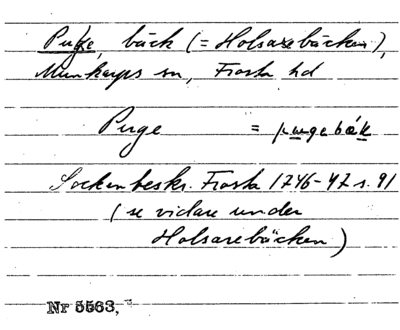 Puge, bäck (= Holsarebäcken),
Munkarps sn, Frosta hd
Purge = purgebäk
Sockenbeskr. Frosta 1746-47 s. 91
(se vidare under
Holsarebäcken)
Nr 5563,